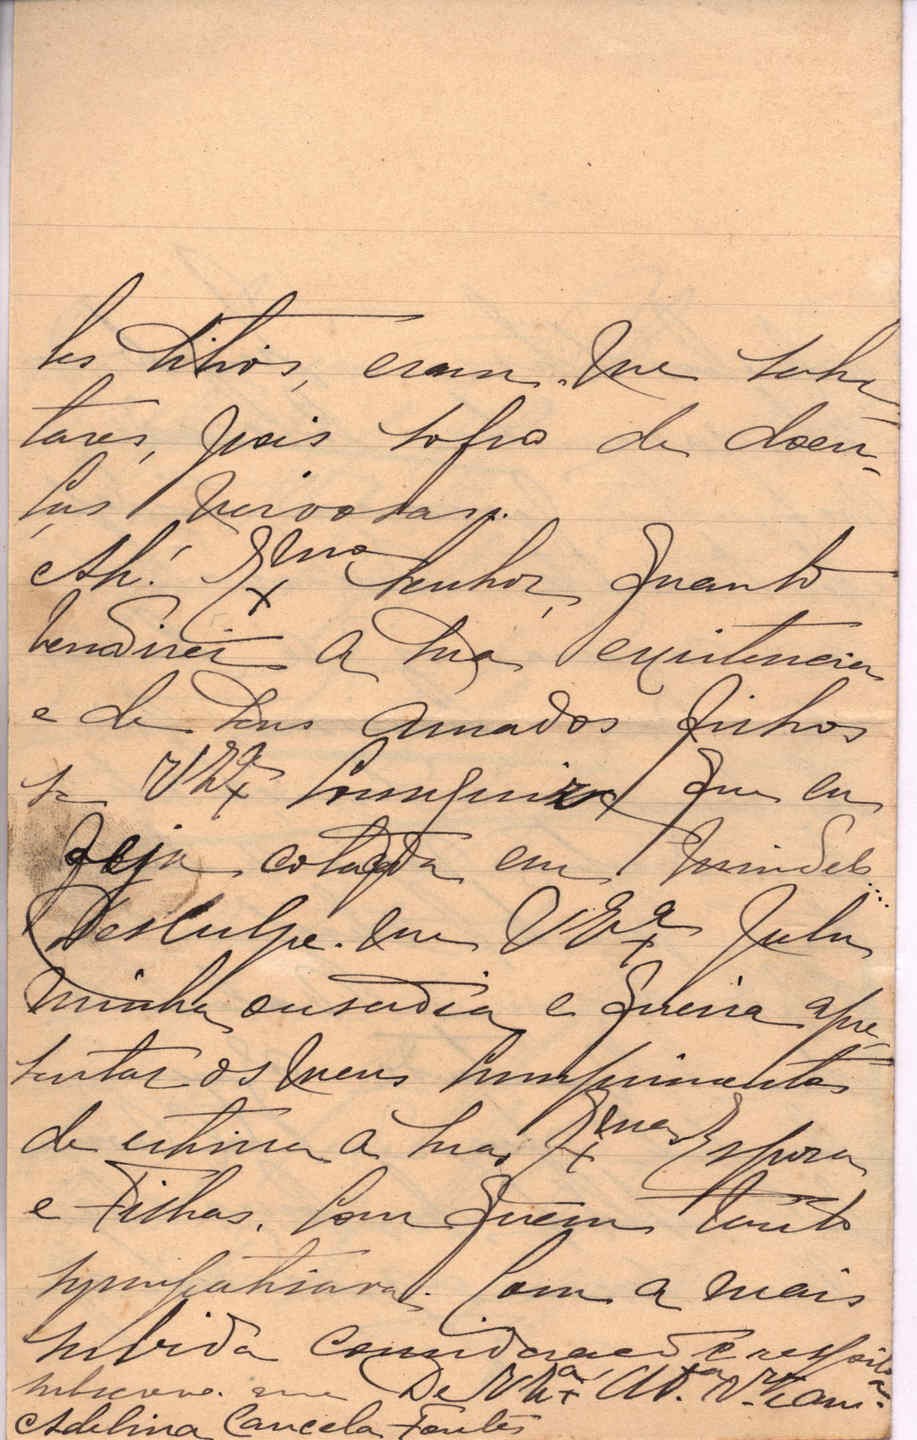 les sitios, eram-me salu-
tares, pois sofro de doen-
ças nervosas.
Ah! Exmo Senhor, quanto
bendirei a sua existencia
e de seus amados filhos
se V Exa conseguir que eu
seja colocada em
Desculpe-me V Exa pela
minha ousadia e queira apre-
sentar os meus cumprimentos
de estima á sua Exma Esposa
e Filhas, com quem tanto
sympathisava. Com a mais
subida consideração e respeito
subscrevo-me De V Exa Att.a V.
Adelina Cancela Fontes